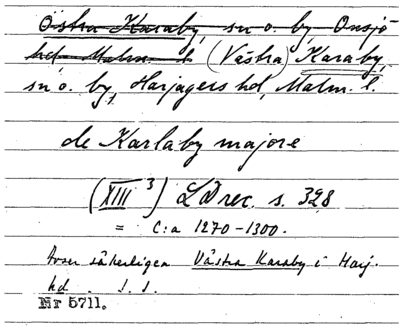 Östra Karaby, sn o. by, Onsjö
hd Malm. l. (Västra) Karaby,
sn o. by, Harjagers hd, Malm. l.
de Karlaby majore
(XIII 3) LDrec. s. 328
= C:a 1270-1300.
Avser säkerligen Västra Karaby i Harj.
hd.
Nr 5711.